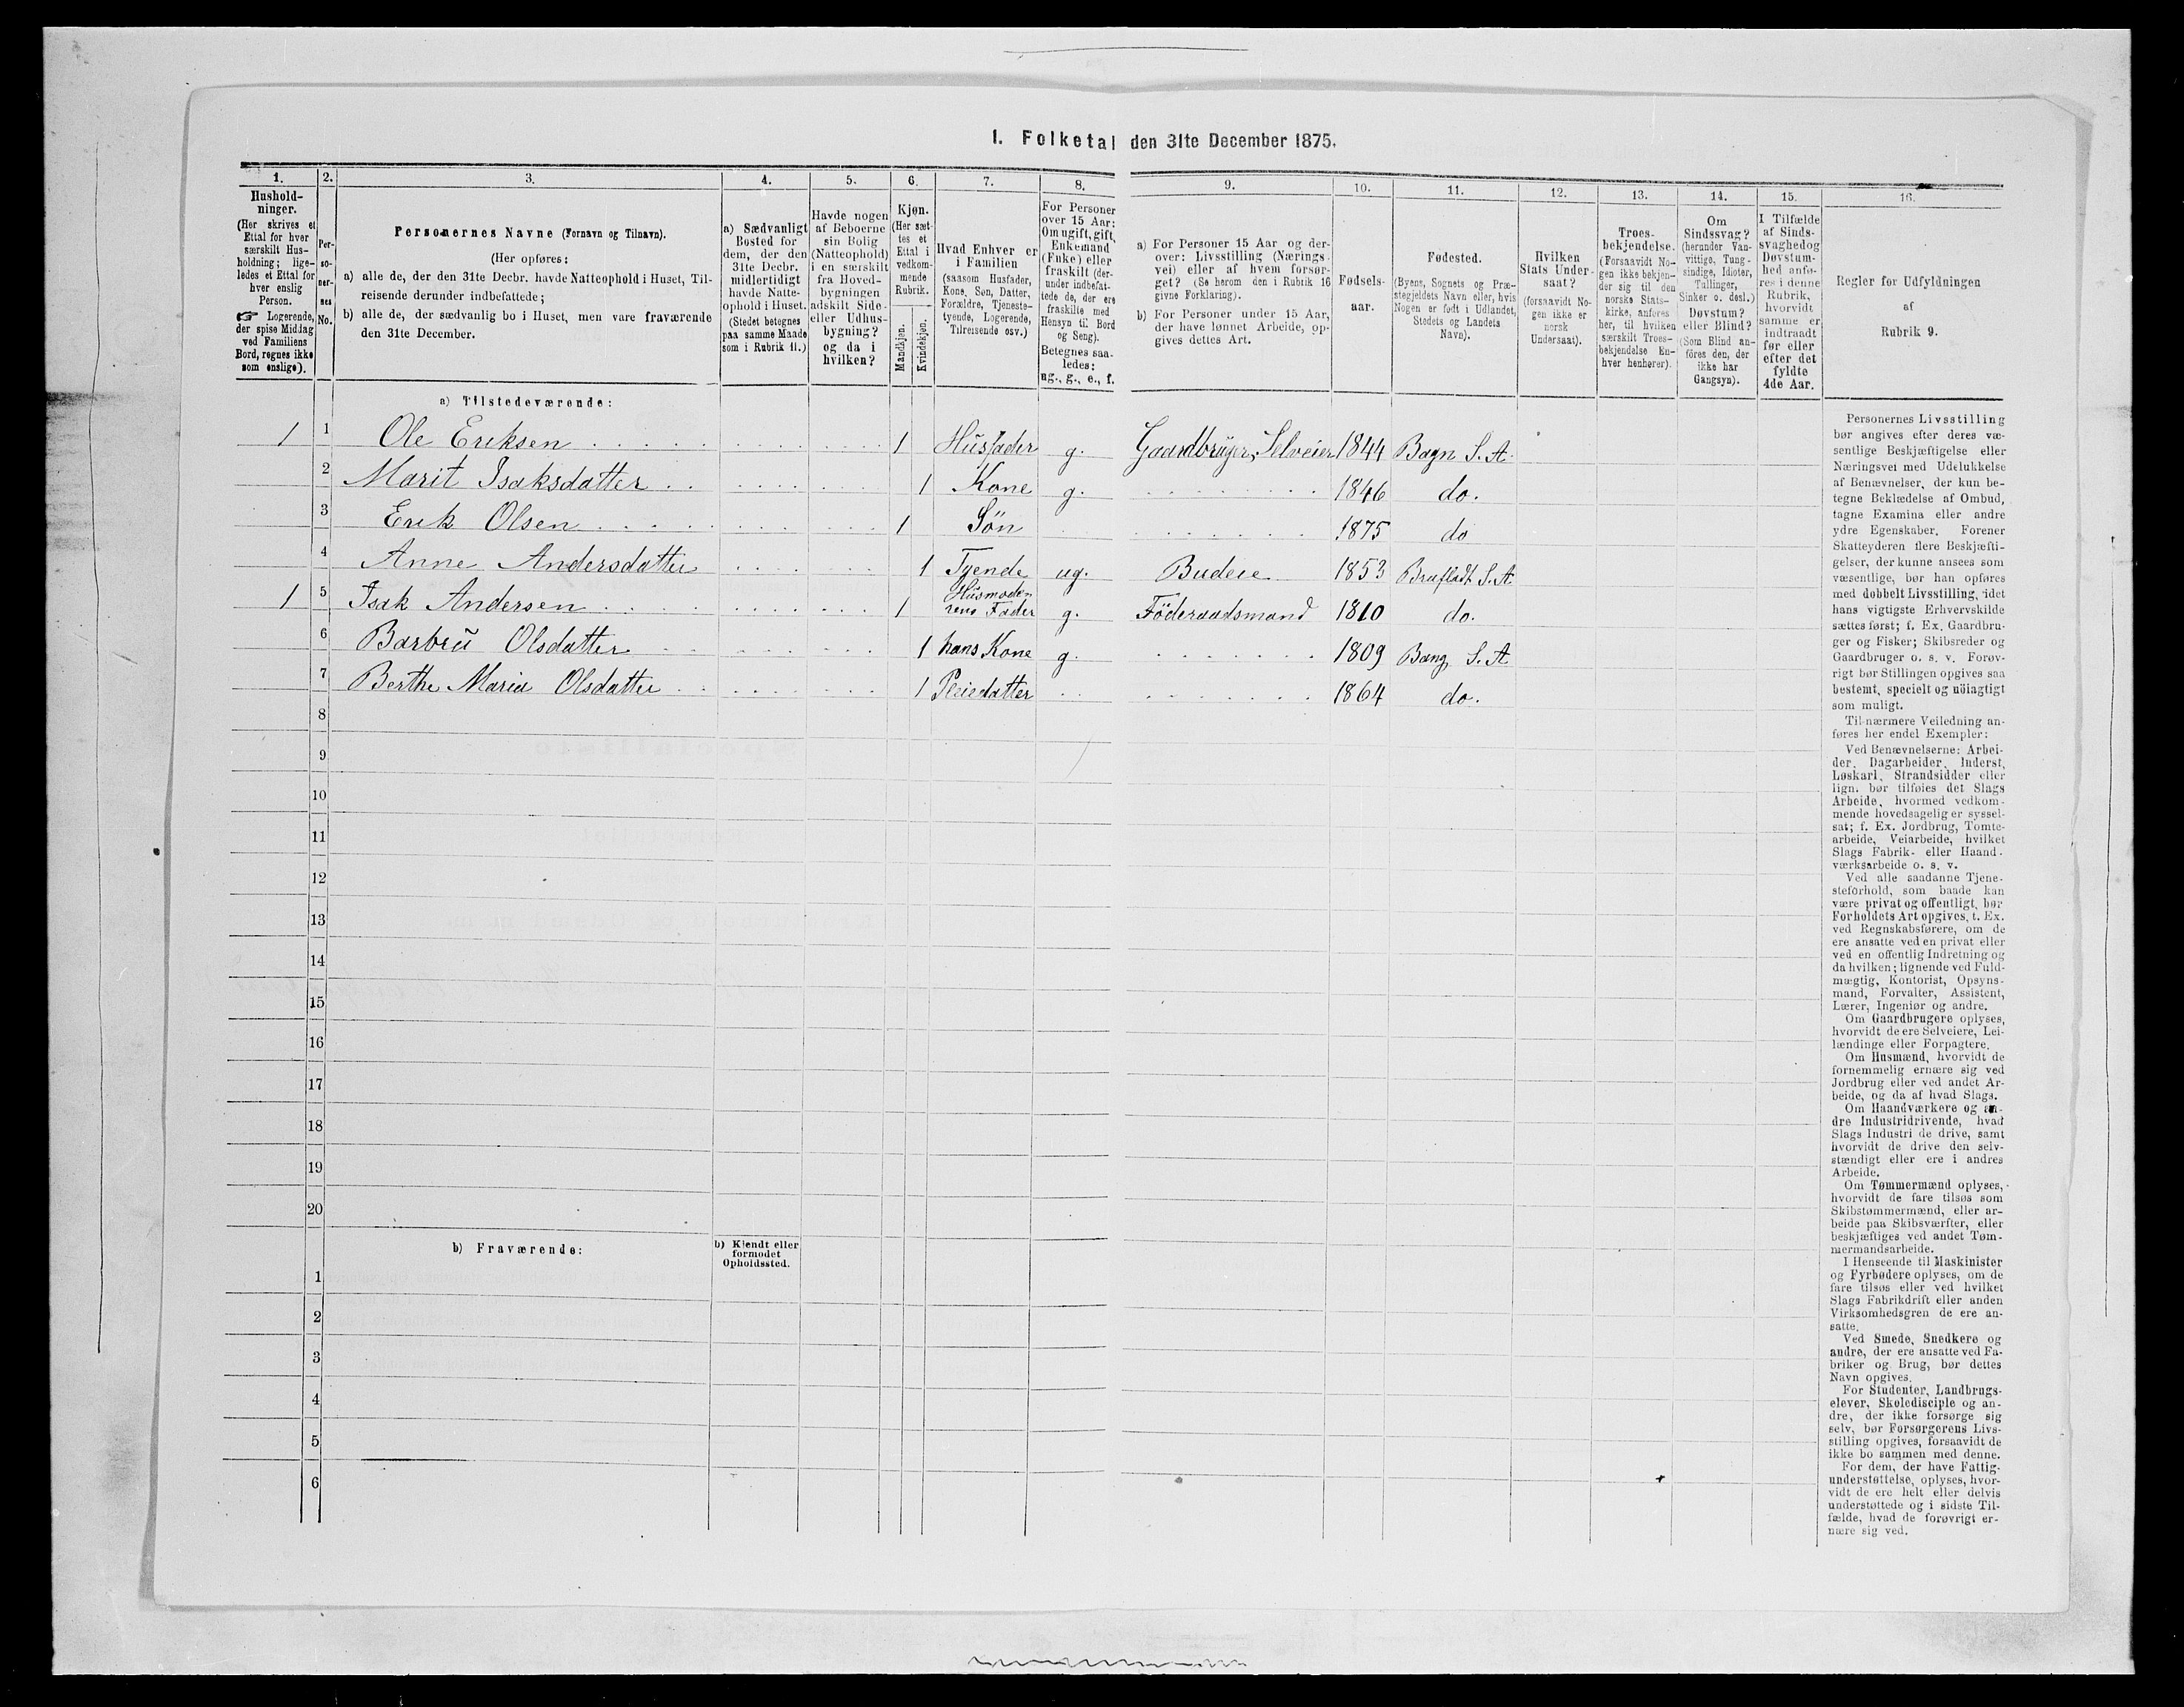 I. Folketal den 31te December 1875.
1. 2. 3. 4. 5. 6. 7. 8. 9. 10. 11. 12. 13. 14. 15. 16.
Hushold-
ninger.
(Her skrives et
Ettal for hver
særskilt Hus-
holdning; lige-
ledes et Ettal for
hver enslig
Person.
☞ Logerende,
der spise Middag
ved Familiens
Bord, regnes ikke
som enslige).
Per-
so-
ner-
nes
No.
Personernes Navne (Fornavn og Tilnavn).
(Her opføres:
a) alle de, der den 31te Decbr. havde Natteophold i Huset, Til-
reisende derunder indbefattede;
b) alle de, der sædvanlig bo i Huset, men vare fraværende
den 31te December.
a) Sædvanligt
Bosted for
dem, der den
31te Decbr.
midlertidigt
havde Natte-
ophold i Huset.
(Stedet betegnes
paa samme Maade
som i Rubrik 11.)
Havde nogen
af Beboerne
sin Bolig
(Natteophold)
i en særskilt
fra Hoved-
bygningen
adskilt Side-
eller Udhus-
bygning?
og da i
hvilken?
Kjøn.
(Her sæt-
tes et
Ettal i
vedkom-
mende
Rubrik.
Mandkjøn.
Kvindekjøn.
Hvad Enhver er
i Familien
(saasom Husfader,
Kone, Søn, Datter,
Forældre, Tjeneste-
tyende, Logerende,
Tilreisende osv.)
For Personer
over 15 Aar:
Om ugift, gift,
Enkemand
(Enke) eller
fraskilt (der-
under indbefat-
tede de, der ere
fraskilte med
Hensyn til Bord
og Seng).
Betegnes saa-
ledes:
ug., g., e., f.
a) For Personer 15 Aar og der-
over: Livsstilling (Nærings-
vei) eller af hvem forsør-
get? (Se herom den i Rubrik 16
givne Forklaring).
b) For Personer under 15 Aar,
der have lønnet Arbeide, op-
gives dettes Art.
Fødsels-
aar.
Fødested.
(Byens, Sognets og Præ-
stegjeldets Navn eller, hvis
Nogen er født i Udlandet,
Stedets og Landets
Navn).
Hvilken
Stats Under-
saat?
(forsaavidt No-
gen ikke er
norsk
Undersaat).
Troes-
bekjendelse.
(Forsaavidt No-
gen ikke bekjen-
der sig til den
norske Stats-
kirke, anføres
her, til hvilken
særskilt Troes-
bekjendelse En-
hver henhører).
Om
Sindssvag?
(herunder Van-
vittige, Tung-
sindige, Idioter,
Tullinger,
Sinker o. desl.)
Døvstum?
eller Blind?
(Som Blind an-
føres den, der
ikke har
Gangsyn).
I Tilfælde
af Sinds-
svaghed og
Døvstum-
hed anfø-
res i denne
Rubrik,
hvorvidt
samme er
indtraadt
før eller
efter det
fyldte
4de Aar.
Regler for Udfyldningen
af
Rubrik 9.
a) Tilstedeværende:
1 1 Ole Eriksen 1 Husfader g. Gaardbruger, Selveier 1844 Bagn S. A.
2 Marit Isaksdatter 1 Kone g. 1846 do.
3 Erik Olsen 1 Søn 1875 do
4 Anne Andersdatter 1 Tyende ug. Budeie 1853 Brufladt S. A.
1 5 Isak Andersen 1 Husmoderens Fader g. Föderaadsmand 1810 do.
6 Barbru Olsdatter 1 hans Kone g. 1809 Bang, S. A
7 Berthe Maria Olsdatter 1 Pleiedatter 1864 do.
8
9
10
11
12
13
14
15
16
17
18
19
20
b) Fraværende:
b) Kjendt eller
formodet
Opholdssted.
1
2
3
4
5
6
Personernes Livsstilling
bør angives efter deres væ-
sentlige Beskjæftigelse eller
Næringsvei med Udelukkelse
af Benævnelser, der kun be-
tegne Beklædelse af Ombud,
tagne Examina eller andre
ydre Egenskaber. Forener
Skatteyderen flere Beskjæfti-
gelser, der kunne ansees som
væsentlige, bør han opføres
med dobbelt Livsstilling, idet
hans vigtigste Erhvervskilde
sættes først; f. Ex. Gaardbru-
ger og Fisker; Skibsreder og
Gaardbruger o. s. v. Forøv-
rigt bør Stillingen opgives saa
bestemt, specielt og nöiagtigt
som muligt.
Til nærmere Veiledning an-
føres her endel Exempler:
Ved Benævnelserne: Arbei-
der, Dagarbeider, Inderst,
Løskarl, Strandsidder eller
lign. bør tilføies det Slags
Arbeide, hvormed vedkom-
mende hovedsagelig er syssel-
sat; f. Ex. Jordbrug, Tomte-
arbeide, Veiarbeide, hvilket
Slags Fabrik- eller Haand-
værksarbeide o. s. v.
Ved alle saadanne Tjene-
steforhold, som baade kan
være privat og offentligt, bør
Forholdets Art opgives, t. Ex.
ved Regnskabsførere, om de
ere ansatte ved en privat eller
ved en offentlig Indretning og
da hvilken; lignende ved Fuld-
mægtig, Kontorist, Opsyns-
mand, Forvalter, Assistent,
Lærer, Ingeniør og andre.
Om Gaardbrugere oplyses,
hvorvidt de ere Selveiere, Lei-
lændinge eller Forpagtere.
Om Husmænd, hvorvidt de
fornemmelig ernære sig ved
Jordbrug eller ved andet Ar-
beide, og da af hvad Slags.
Om Haandværkere og an-
dre Industridrivende, hvad
Slags Industri de drive, samt
hvorvidt de drive den selv-
stændigt eller ere i andres
Arbeide.
Om Tømmermænd oplyses,
hvorvidt de fare tilsøs som
Skibstømmermænd, eller ar-
beide paa Skibsværfter, eller
beskjæftiges ved andet Tøm-
mermandsarbeide.
I Henseende til Maskinister
og Fyrbødere oplyses, om de
fare tilsøs eller ved hvilket
Slags Fabrikdrift eller anden
Virksomhedsgren de ere an-
satte.
Ved Smede, Snedkere og
andre, der ere ansatte ved Fa-
briker og Brug, bør dettes
Navn opgives.
For Studenter, Landbrugs-
elever, Skoledisciple og an-
dre, der ikke forsørge sig
selv, bør Forsørgerens Livs-
stilling opgives, forsaavidt de
ikke bo sammen med denne.
For dem, der have Fattig-
understøttelse, oplyses, hvor-
vidt de ere helt eller delvis
understøttede og i sidste Til-
fælde, hvad de forøvrigt er-
nære sig ved.